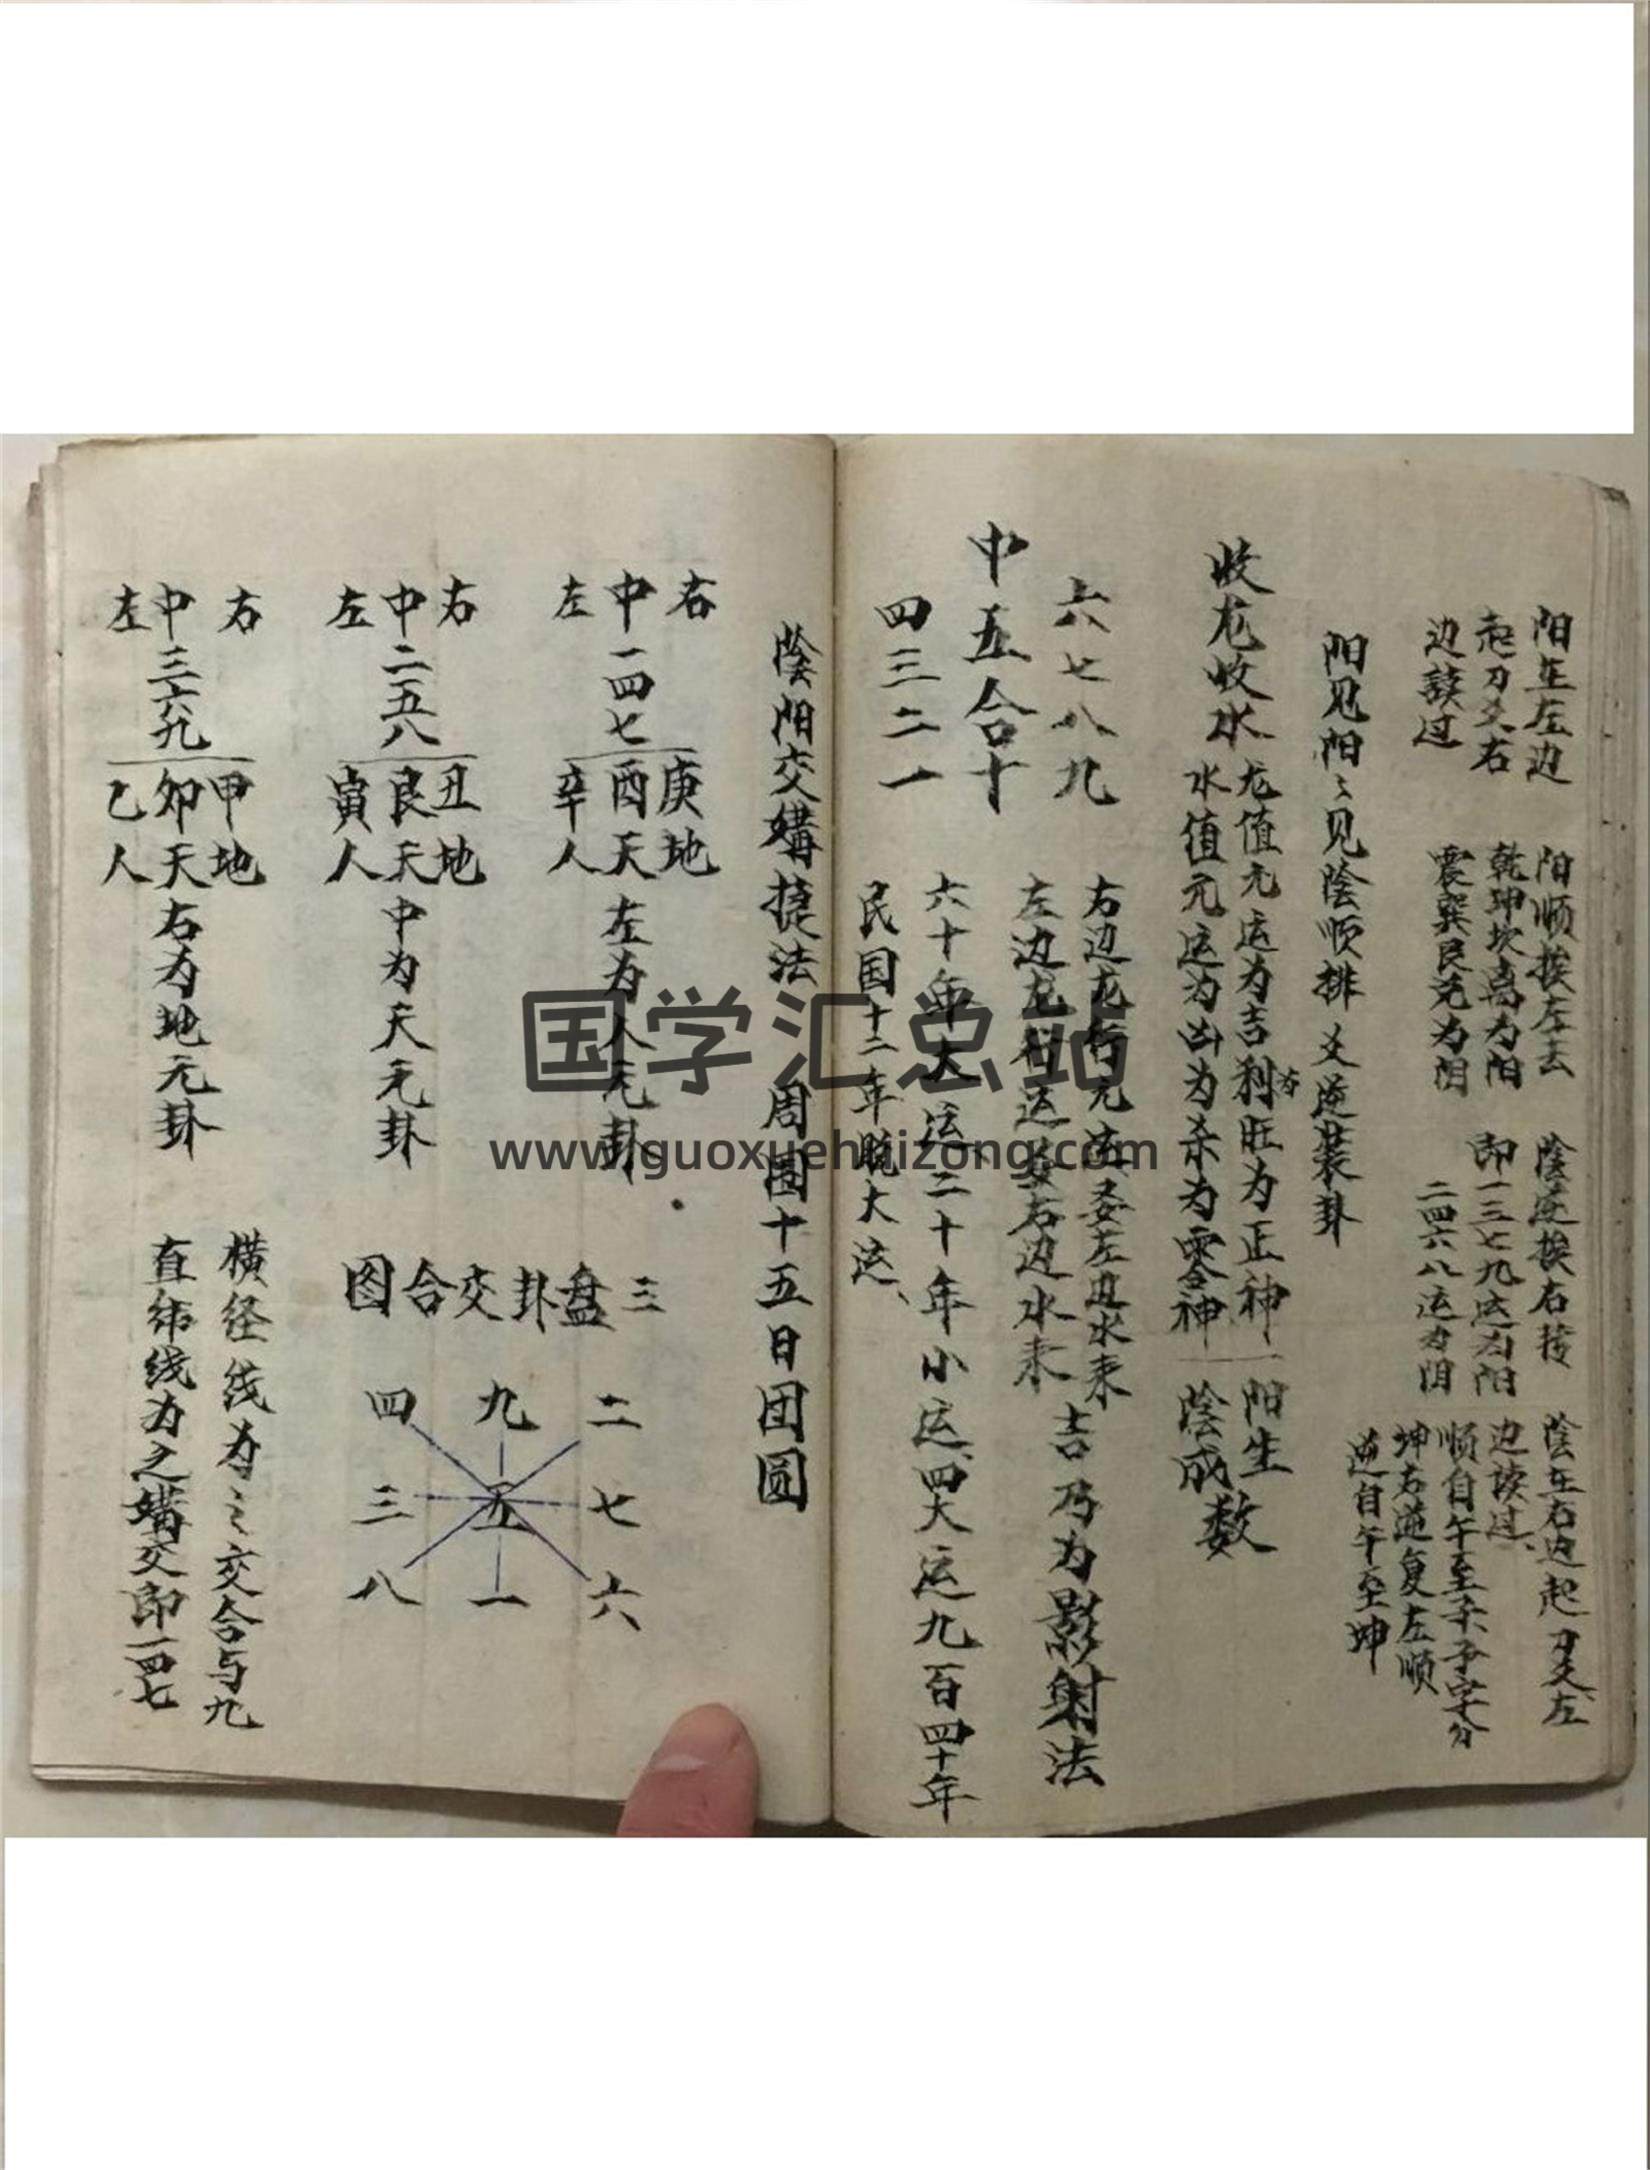 阳在左边
起刀爻右
边读过
阳顺挨左去
乾坤坎离为阳
震巽艮兑为阴
陰逆挨右转
即一三七九运为阳
二四六八运为阴
陰在右边起刀爻左
边读过、
顺自午至子子字分
坤右逆复左顺
逆自午至坤
阳见阳〻见陰顺排爻逆装卦
收龙收水
龙值元运为吉利为旺为正神
水值元运为凶为杀为零神
阳生
陰成
数
六七八九
中五合十
四三二一
右边龙行元运要左边水来
左边龙行运要右边水来
吉乃为影射法
六十年大运、二十年小运、四大运九百四十年
民国十二年脱大运、
陰阳交媾捷法
周围十五日团圆
右
中一四七
左
庚地
酉天
辛人
左为人元卦、
右
中二五八
左
丑地
艮天
寅人
中为天元卦
右
中三六九
左
甲地
卯天
乙人
右为地元卦
图合交卦盘三
四 九 二
三 五 七
八 一 六
横径线为之〻交合与九
直纬线为之媾交即一四七
国学汇总站
www.guoxuehuizong.com